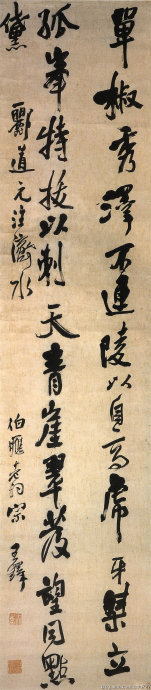 單椒秀澤不連陵以自高虎牙桀立
孤峯特拔以刺天青崖翠發望同點
黛
酈道元注濟水
伯老詞宗
王鐸